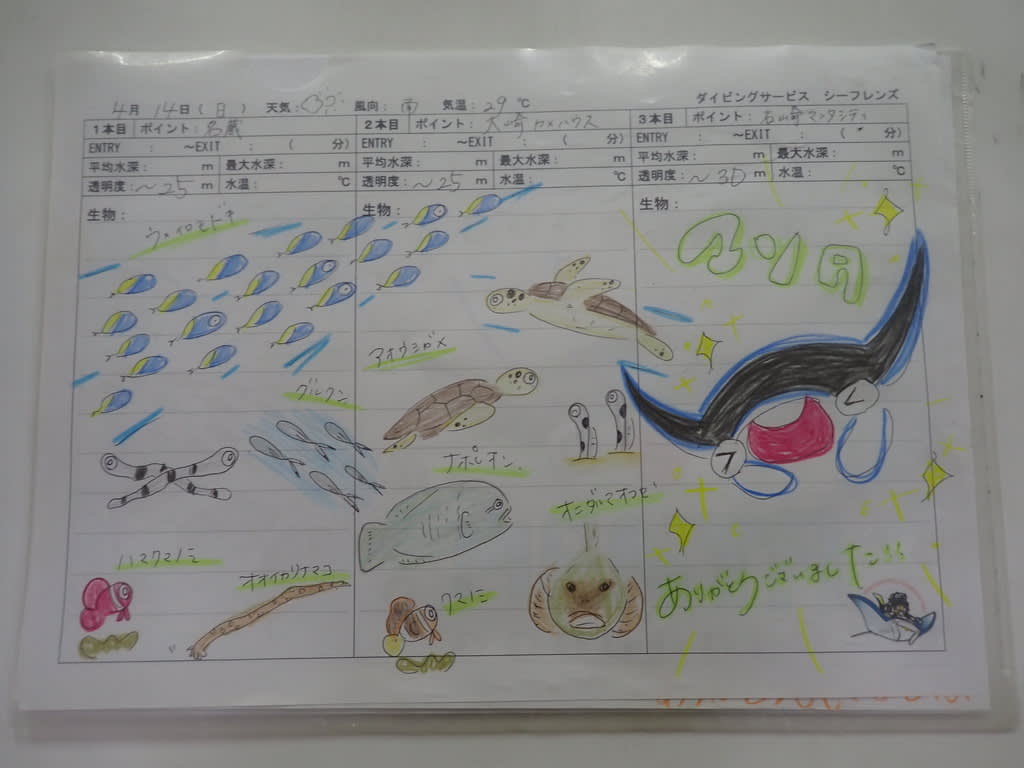 4月 14日(日) 天気: 風向: 南 気温: 29 ℃
ダイビングサービス シーフレンズ
1本目 ポイント: 名蔵
ENTRY : ～EXIT : ( 分)
平均水深: m 最大水深: m
透明度: ～25 m 水温: ℃
生物:
ウメイロモドキ
グルクン
ハマクマノミ
オオイカリナマコ
2本目 ポイント: 大崎カメハウス
ENTRY : ～EXIT : ( 分)
平均水深: m 最大水深: m
透明度: ～25 m 水温: ℃
生物:
アオウミガメ
ナポレオン
オニダルマオコゼ
クマノミ
3本目 ポイント: 石崎マンタシティ
ENTRY : ～EXIT : ( 分)
平均水深: m 最大水深: m
透明度: ～30 m 水温: ℃
生物:
マンタ
ありがとうございました!!